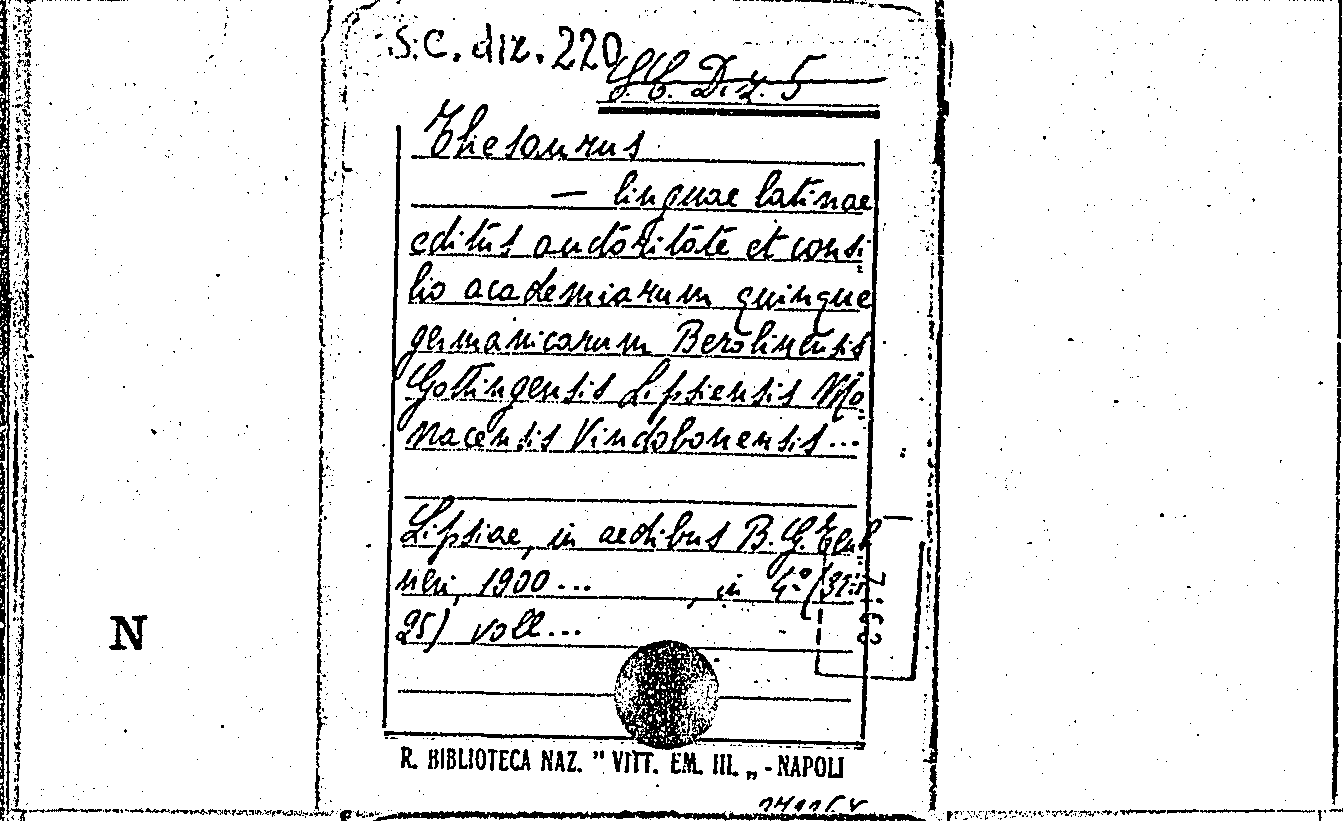 S.C. diz. 220
Diz. 5
Thesaurus
— linguae latinae
editus auctoritate et consi
lio academiarum quinque
germanicarum Berolinensis
Gottingensis Lipsiensis Mo
nacensis Vindobonensis...
Lipsiae, in aedibus B. G. Teub
neri, 1900... , in 4.°
25) voll...
N
R. BIBLIOTECA NAZ. " VITT. EM. III. „ - NAPOLI